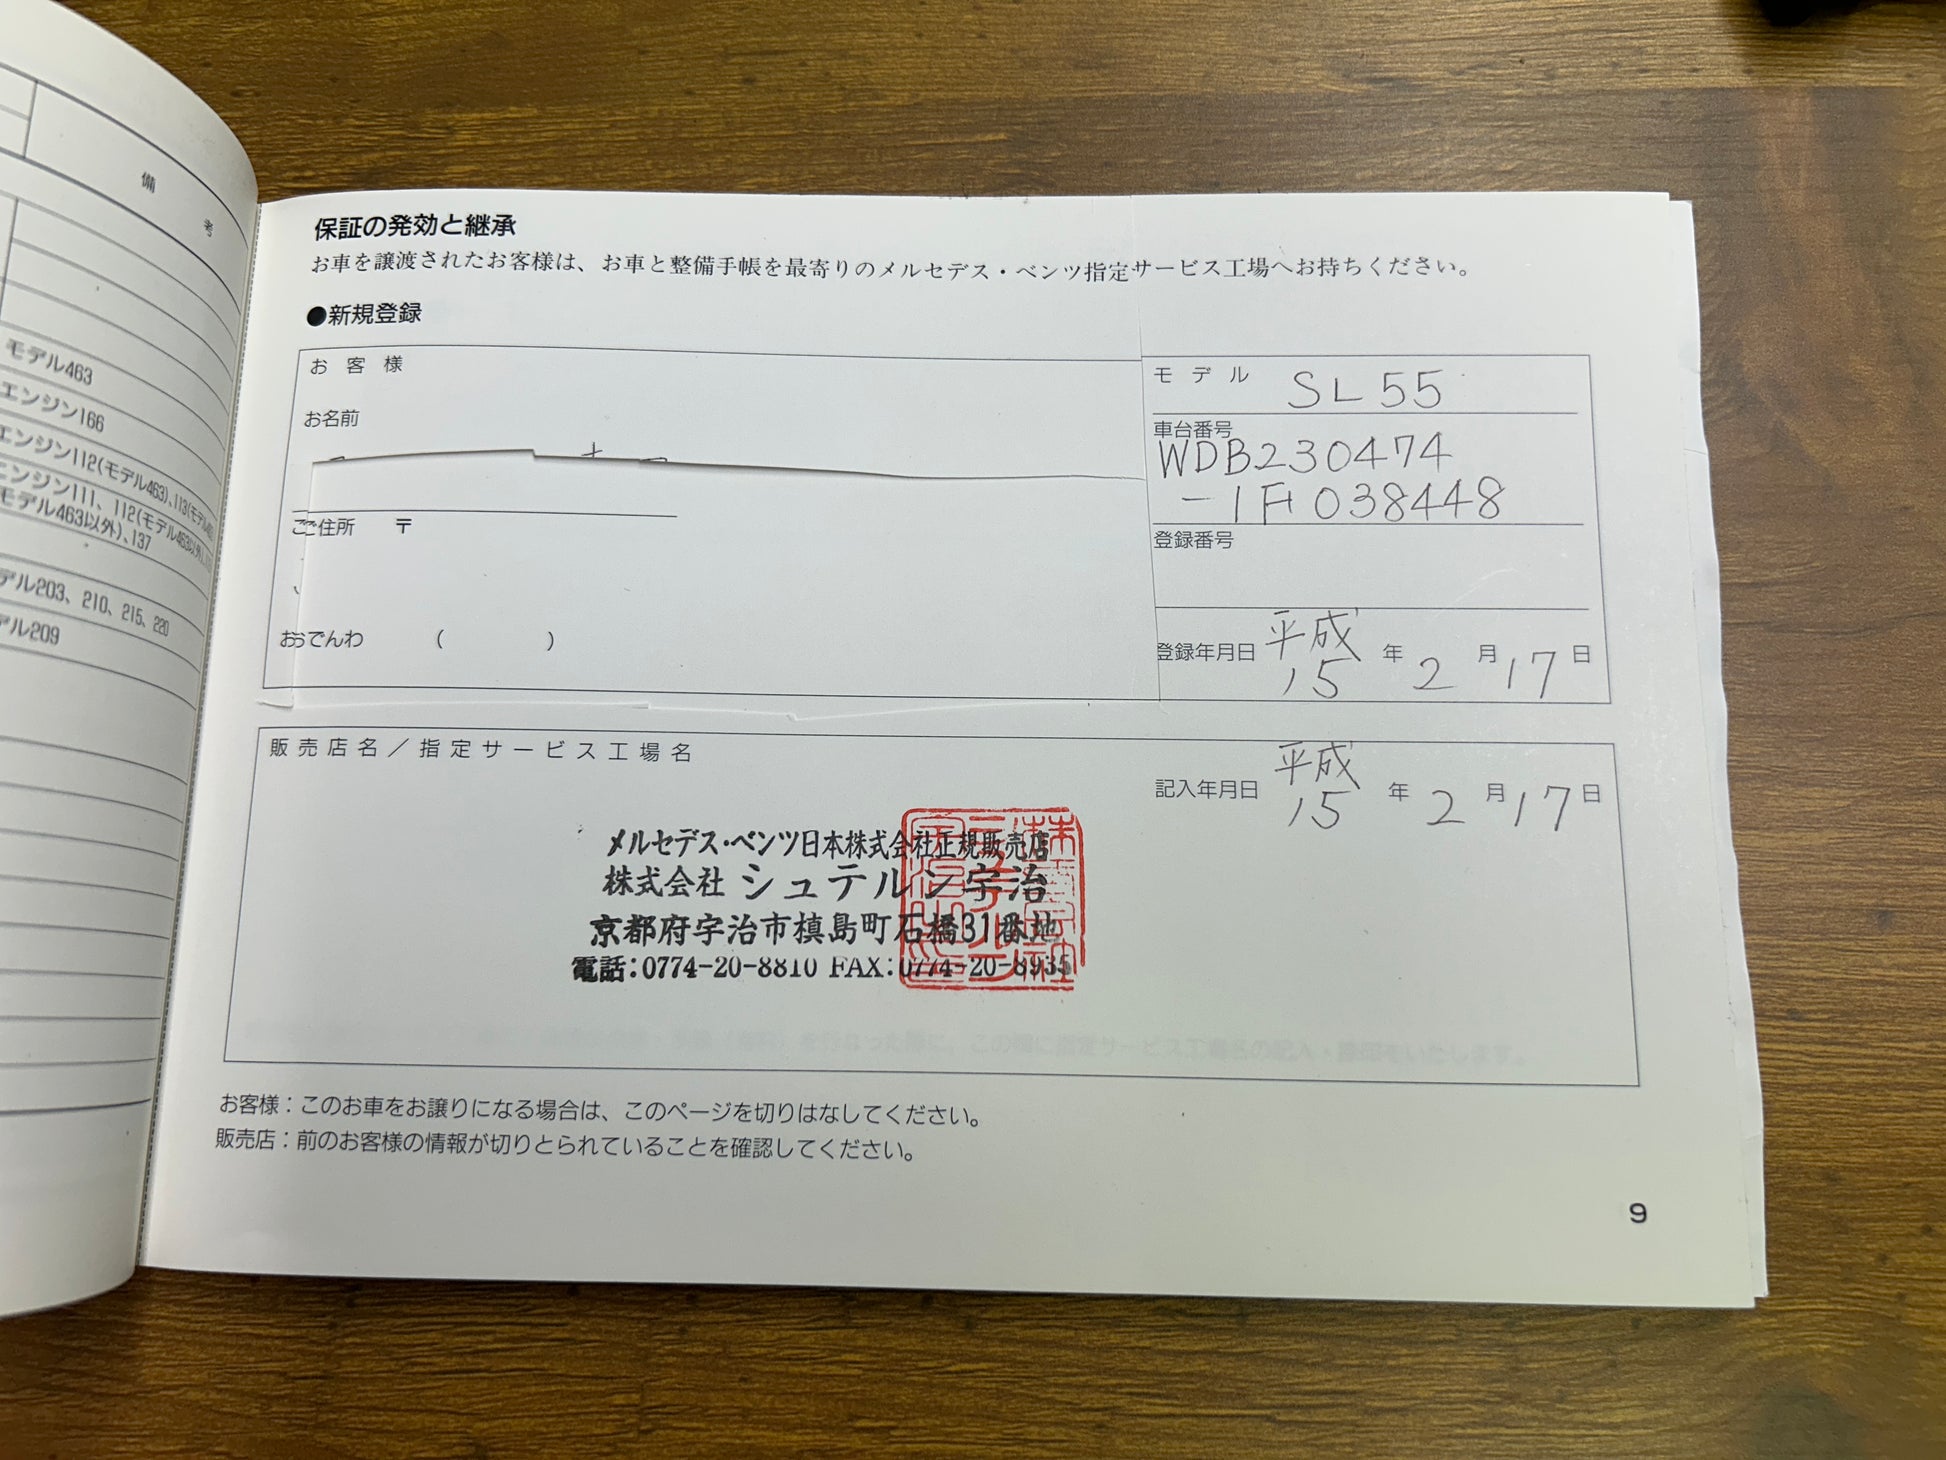 備考
モデル463
エンジン166
エンジン112(モデル463)、113(モデル
エンジン111、112(モデル463以外)、
モデル463以外)、137
デル203、210、215、220
デル209
保証の発効と継承
お車を譲渡されたお客様は、お車と整備手帳を最寄りのメルセデス・ベンツ指定サービス工場へお持ちください。
●新規登録
お客様
お名前
ご住所 〒
おでんわ ( )
モデル SL55
車台番号
WDB230474
-1F038448
登録番号
登録年月日 平成15年2月17日
販売店名／指定サービス工場名
記入年月日 平成15年2月17日
メルセデス・ベンツ日本株式会社正規販売店
株式会社 シュテルン宇治
京都府宇治市槙島町石橋31番地
電話:0774-20-8810 FAX:0774-20-8935
お客様：このお車をお譲りになる場合は、このページを切りはなしてください。
販売店：前のお客様の情報が切りとられていることを確認してください。
9